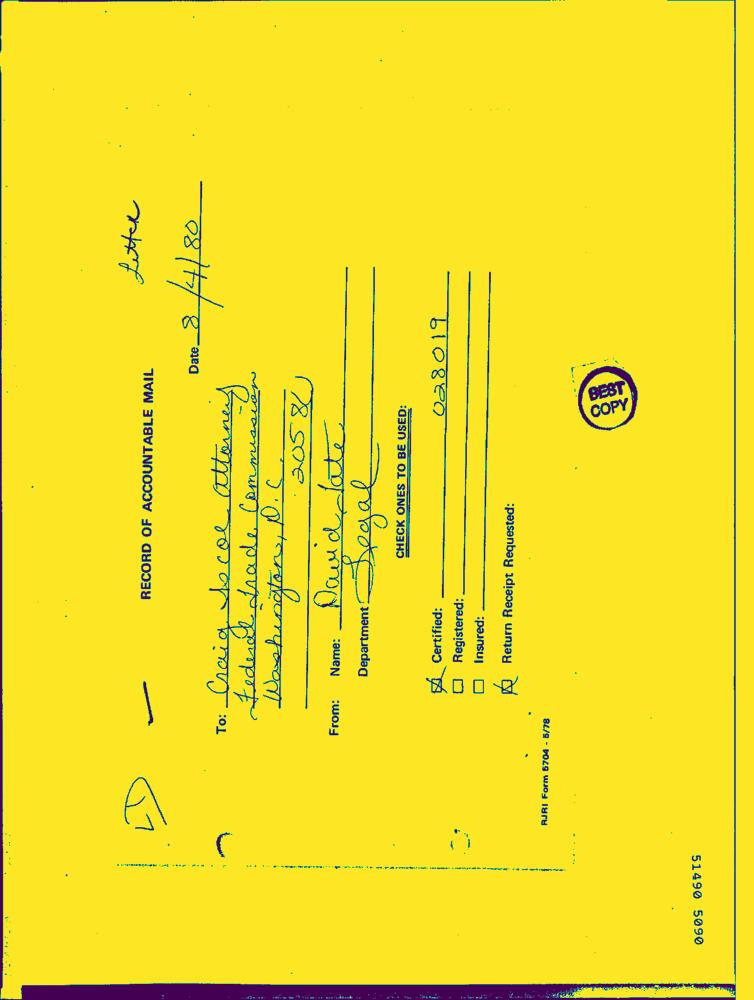 Letter
RECORD OF ACCOUNTABLE MAIL
Date 8/4/80
To: Craig Attorney
Federal Trade Commission
Washington, D.C.
2058
From: Name: David
Department Legal
CHECK ONES TO BE USED:
Certified: 028019
Registered:
Insured:
Return Receipt Requested:
RJRI Form 5704 - 5/78
BEST
COPY
51490 5090